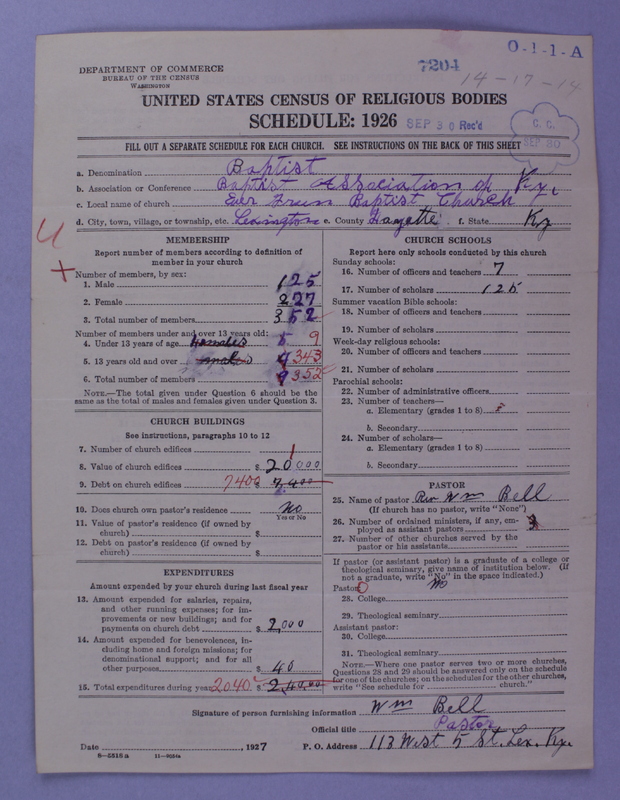 O-1-1-A
7204
14-17-14
DEPARTMENT OF COMMERCE
BUREAU OF THE CENSUS
WASHINGTON
UNITED STATES CENSUS OF RELIGIOUS BODIES
SCHEDULE: 1926
SEP 30 Rec'd
C. C.
SEP 30
FILL OUT A SEPARATE SCHEDULE FOR EACH CHURCH. SEE INSTRUCTIONS ON THE BACK OF THIS SHEET
a. Denomination Baptist
b. Association or Conference Baptist Association of Ky.
c. Local name of church Ever Green Baptist Church
d. City, town, village, or township, etc. Lexington e. County Fayette f. State Ky
MEMBERSHIP
Report number of members according to definition of
member in your church
Number of members, by sex:
1. Male 125
2. Female 227
3. Total number of members 352
Number of members under and over 13 years old:
4. Under 13 years of age 9
5. 13 years old and over 343
6. Total number of members 352
NOTE.—The total given under Question 6 should be the
same as the total of males and females given under Question 3.
CHURCH BUILDINGS
See instructions, paragraphs 10 to 12
7. Number of church edifices 1
8. Value of church edifices $ 20000
9. Debt on church edifices 7400 $ 7,400
10. Does church own pastor's residence? No
Yes or No
11. Value of pastor's residence (if owned by
church) $
12. Debt on pastor's residence (if owned by
church) $
EXPENDITURES
Amount expended by your church during last fiscal year
13. Amount expended for salaries, repairs,
and other running expenses; for im-
provements or new buildings; and for
payments on church debt $ 2,000
14. Amount expended for benevolences, in-
cluding home and foreign missions; for
denominational support; and for all
other purposes $ 40
15. Total expenditures during year 2040 $ 2,40,00
CHURCH SCHOOLS
Report here only schools conducted by this church
Sunday schools:
16. Number of officers and teachers 7
17. Number of scholars 125
Summer vacation Bible schools:
18. Number of officers and teachers
19. Number of scholars
Week-day religious schools:
20. Number of officers and teachers
21. Number of scholars
Parochial schools:
22. Number of administrative officers
23. Number of teachers—
a. Elementary (grades 1 to 8)
b. Secondary
24. Number of scholars—
a. Elementary (grades 1 to 8)
b. Secondary
PASTOR
25. Name of pastor Rev Wm Bell
(If church has no pastor, write "None")
26. Number of ordained ministers, if any, em-
ployed as assistant pastors
27. Number of other churches served by the
pastor or his assistants
If pastor (or assistant pastor) is a graduate of a college or
theological seminary, give name of institution below. (If
not a graduate, write "No" in the space indicated.)
Pastor: No
28. College
29. Theological seminary
Assistant pastor:
30. College
31. Theological seminary
NOTE.—Where one pastor serves two or more churches,
Questions 28 and 29 should be answered only on the schedule
for one of the churches; on the schedules for the other churches,
write "See schedule for church."
Signature of person furnishing information Wm Bell
Official title Pastor
Date , 1927 P. O. Address 113 West 5 St. Lex. Ky.
8-5318a 11-9034a